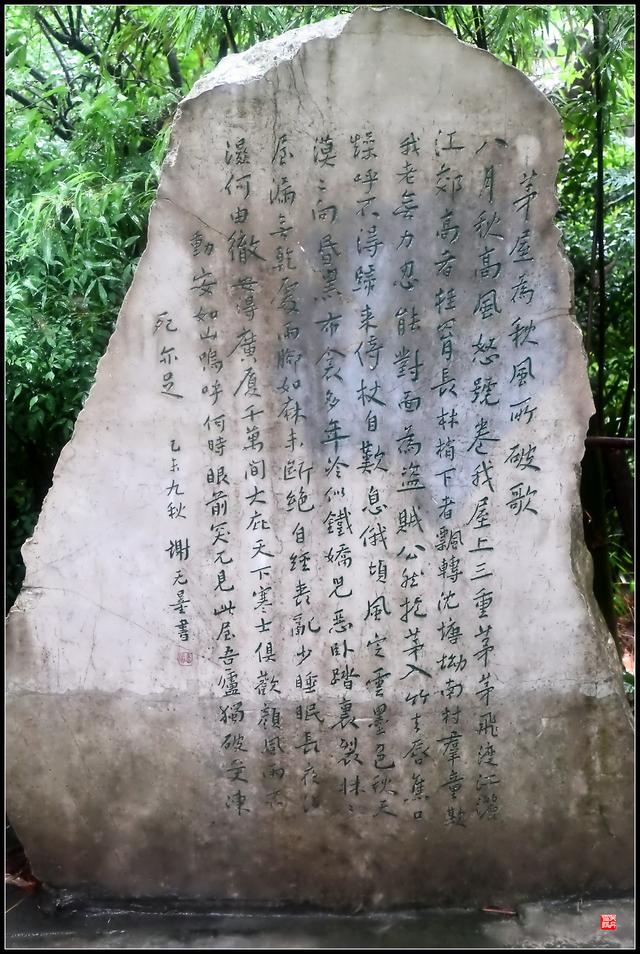 茅屋為秋風所破歌
八月秋高風怒號卷我屋上三重茅茅飛渡江灑
江郊高者挂罥長林梢下者飄轉沈塘坳南村羣童欺
我老無力忍能對面為盜賊公然抱茅入竹去唇焦口
燥呼不得歸來倚杖自歎息俄頃風定雲墨色秋天
漠〻向昏黑布衾多年冷似鐵嬌兒惡卧踏裏裂牀〻
屋漏無乾處雨腳如麻未斷絕自經喪亂少睡眠長夜沾
濕何由徹安得廣厦千萬間大庇天下寒士俱歡顏風雨不
動安如山嗚呼何時眼前突兀見此屋吾廬獨破受凍
死亦足
乙未九秋 謝无量書